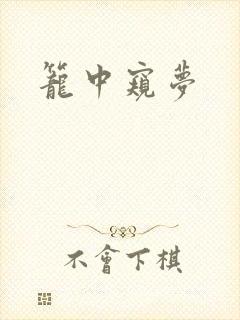 籠中窺夢
不會下棋